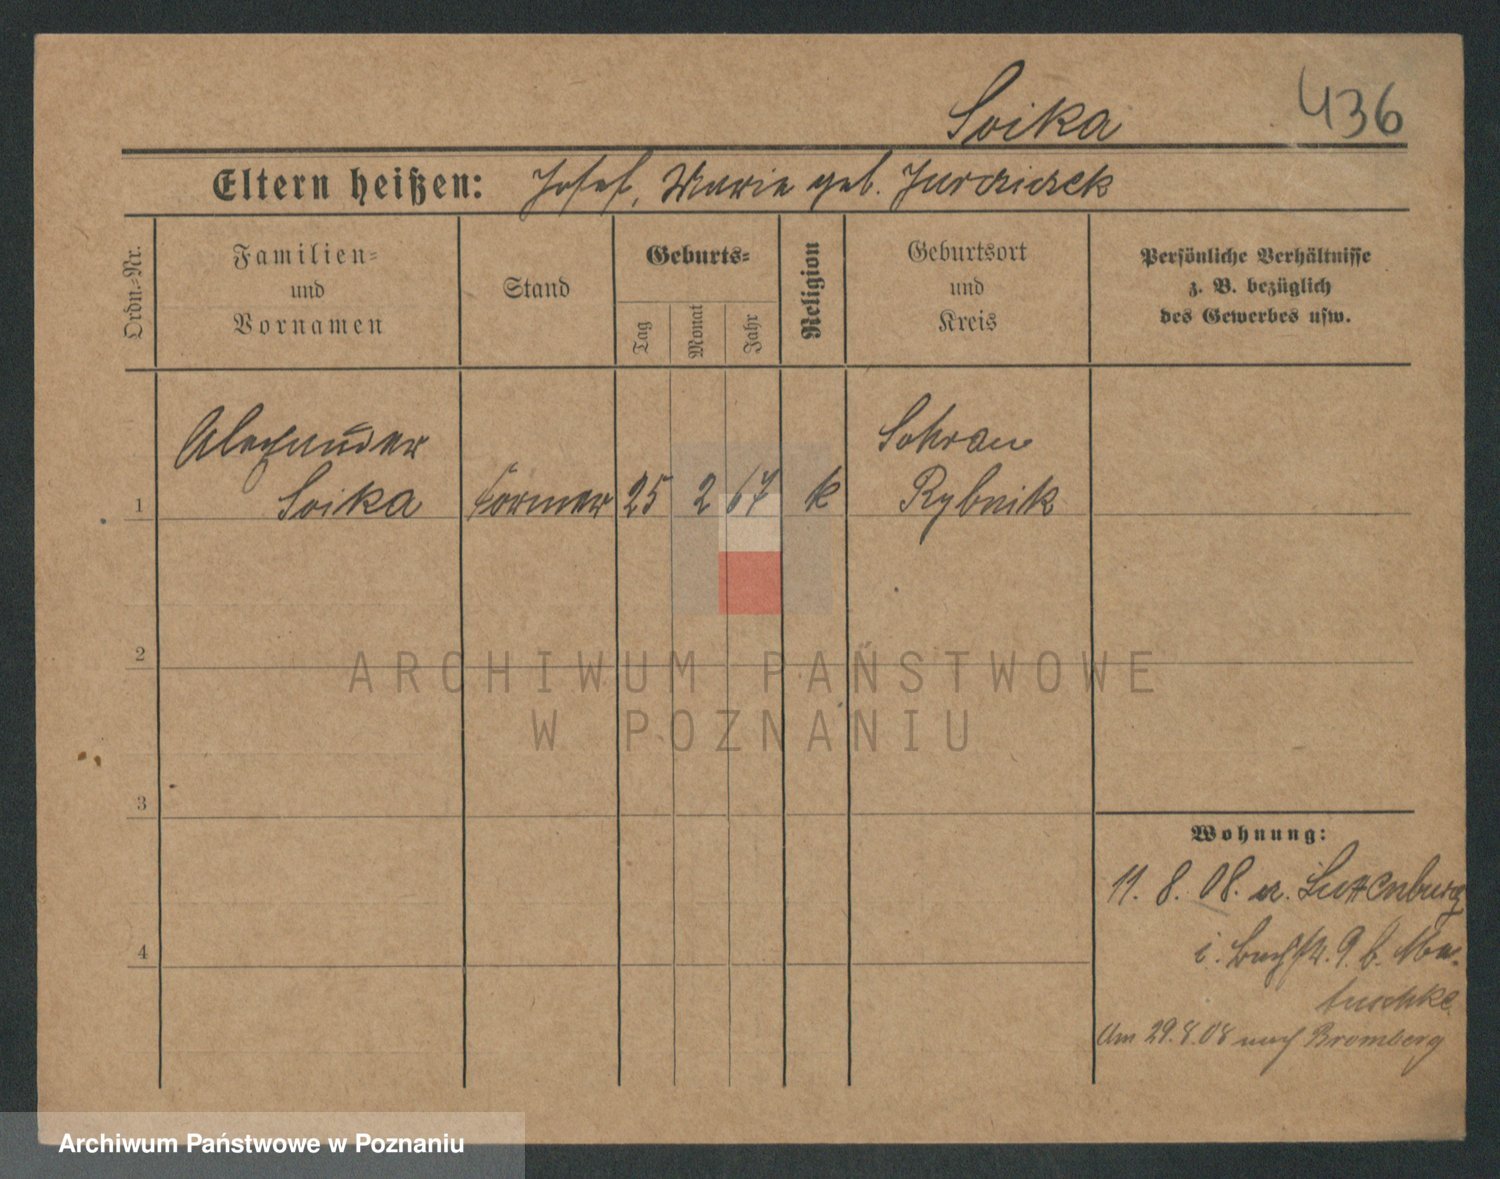 Soika
436
Eltern heißen: Josef, Marie geb.
Ordn.=Nr.
Familien=
und
Vornamen
Stand
Geburts=
Tag
Monat
Jahr
Religion
Geburtsort
und
Kreis
Persönliche Verhältnisse
z. B. bezüglich
des Gewerbes usw.
Alexander
Soika
1
Former
25
2
67
k
Sohrau
Rybnik
2
3
4
Wohnung:
11. 8. 08. a.
i. 9. b. Ma-
tuschke
Am 29.8.08 nach Bromberg
ARCHIWUM PAŃSTWOWE
W POZNANIU
Archiwum Państwowe w Poznaniu